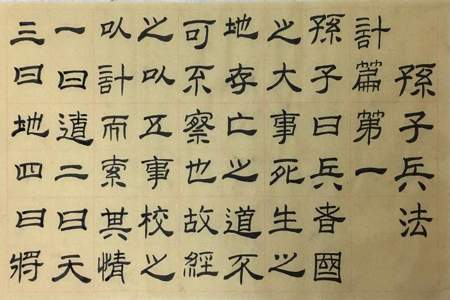 孫子兵法
計篇第一
孫子曰兵者國
之大事死生之
地存亡之道不
可不察也故經
之以五事校之
以計而索其情
一曰道二曰天
三曰地四曰將